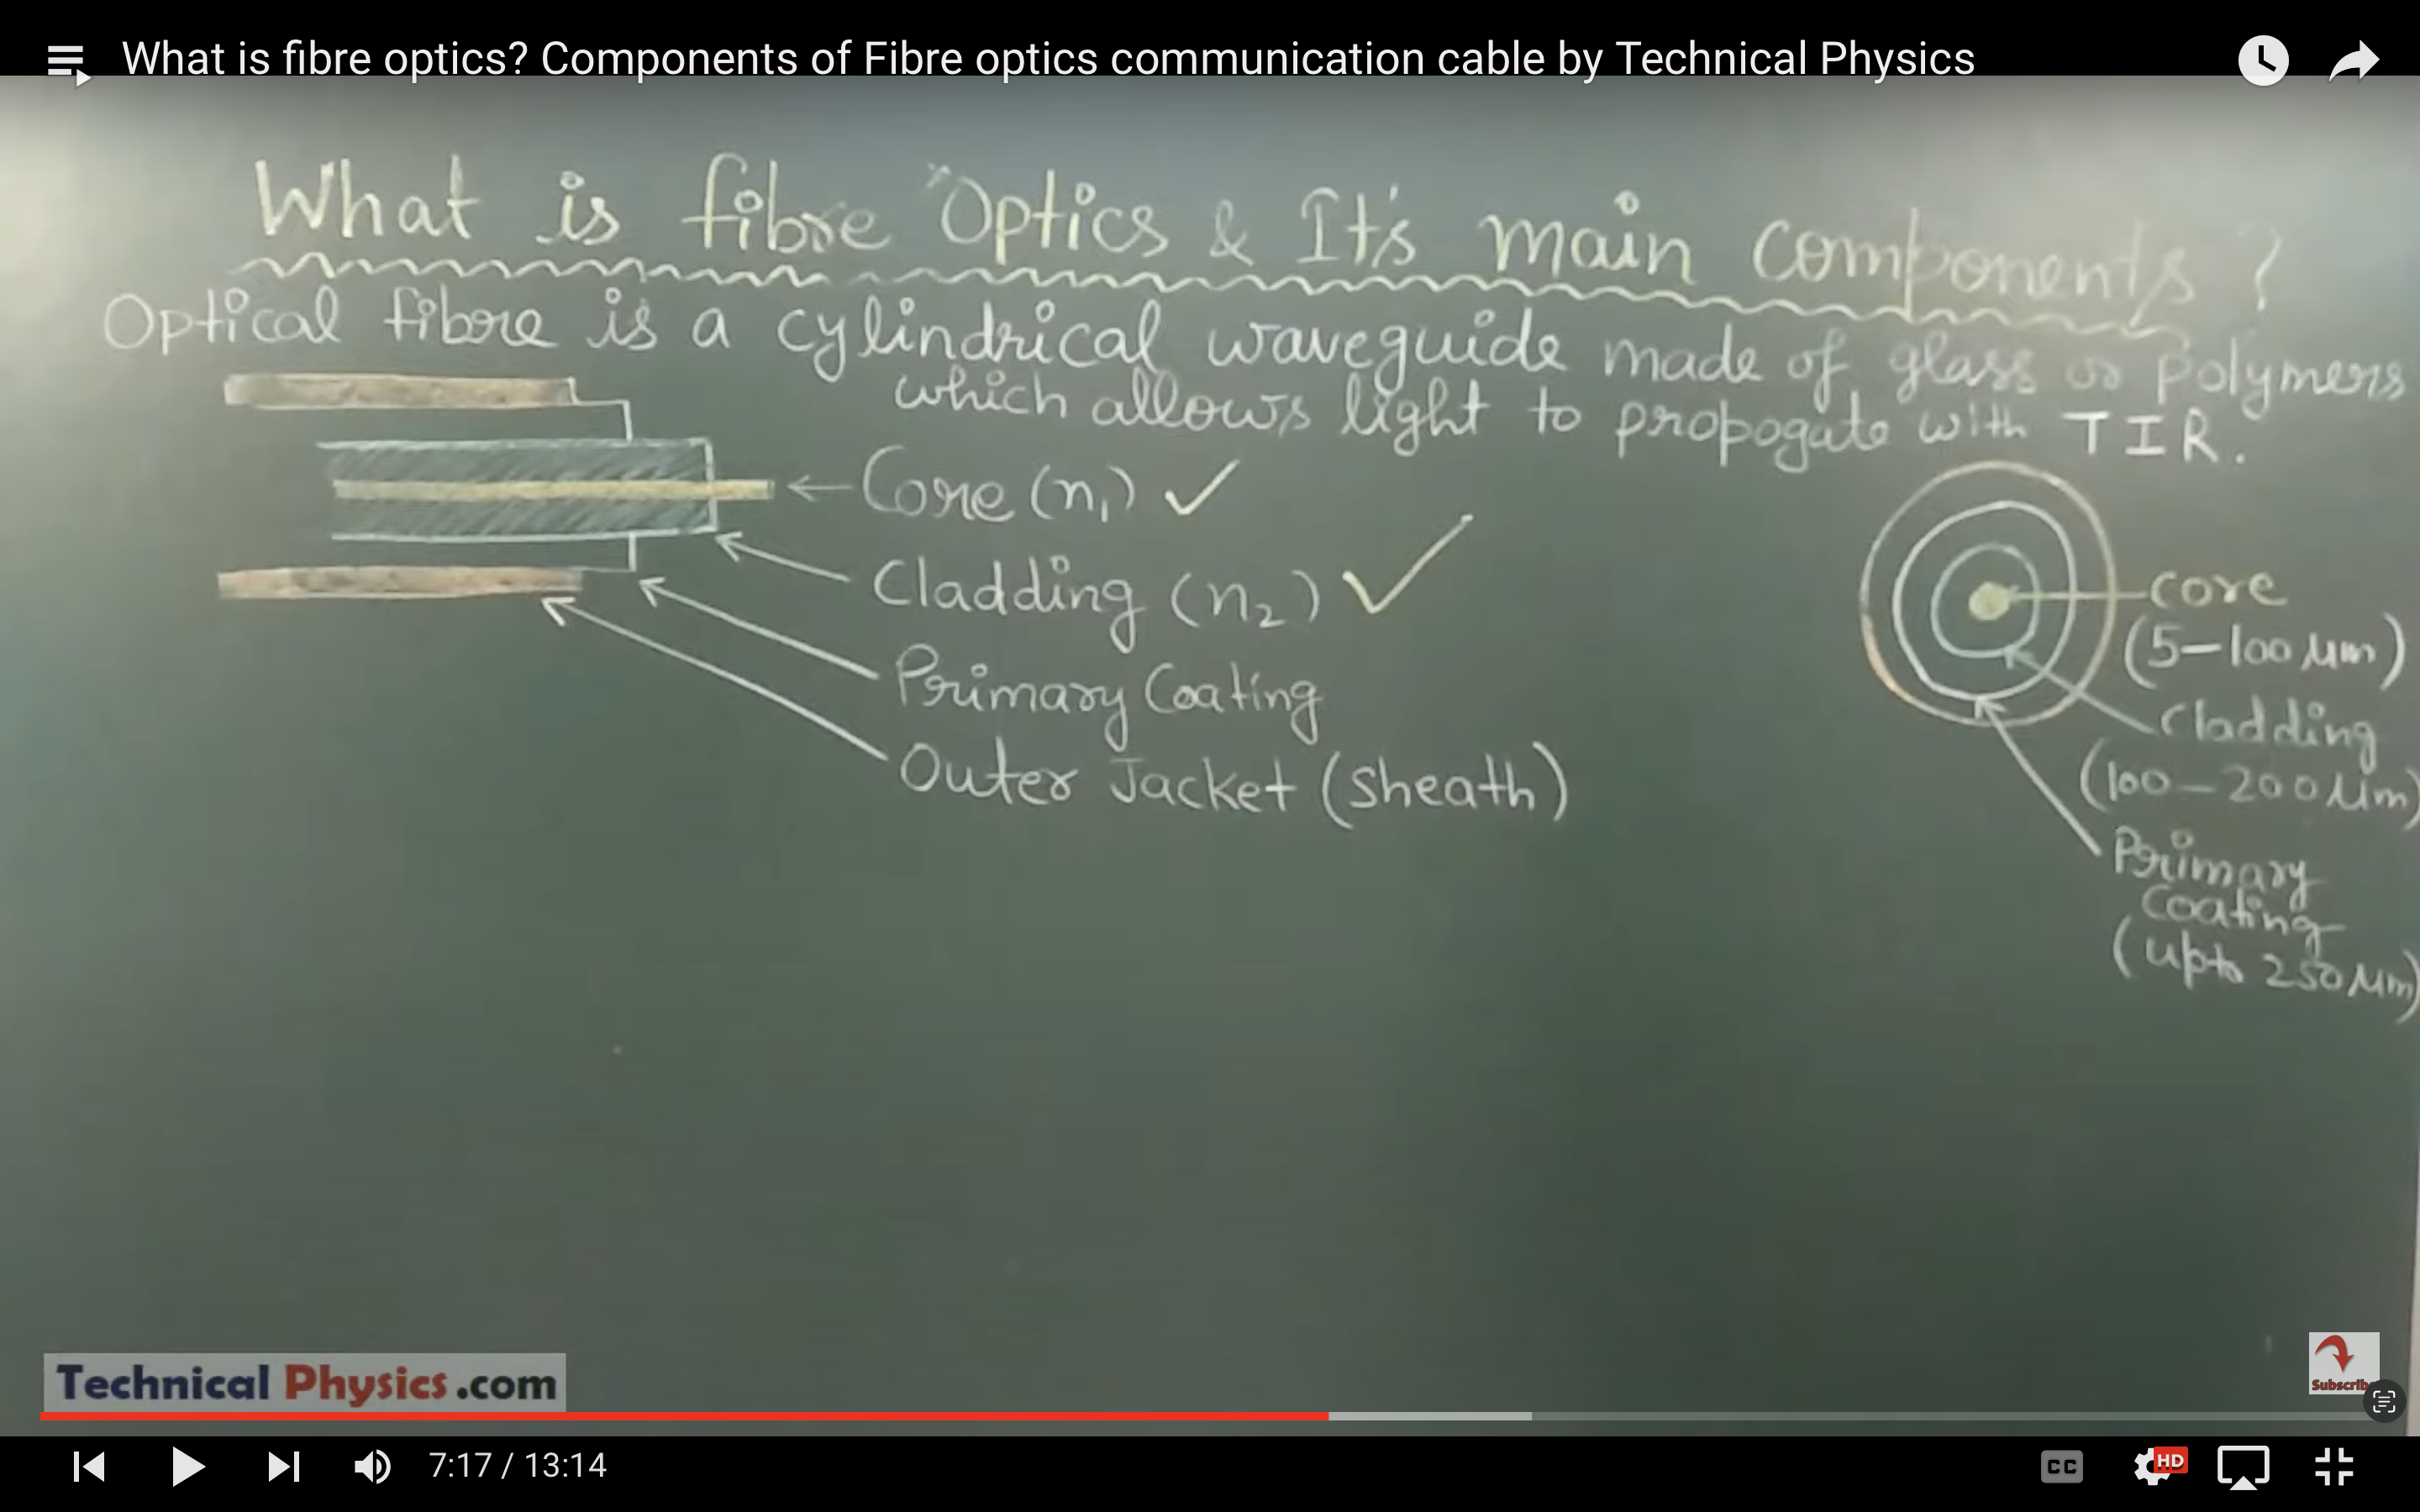 What is fibre optics? Components of Fibre optics communication cable by Technical Physics
What is fibre Optics & It's main Components ?
Optical fibre is a cylindrical waveguide made of glass or polymers
which allows light to propogate with TIR.
Core (n₁) ✓
Cladding (n₂) ✓
Primary Coating
Outer Jacket (Sheath)
core
(5-100 μm)
cladding
(100-200 μm)
Primary
Coating
(upto 250 μm)
Technical Physics.com
Subscribe
7:17 / 13:14
CC
HD